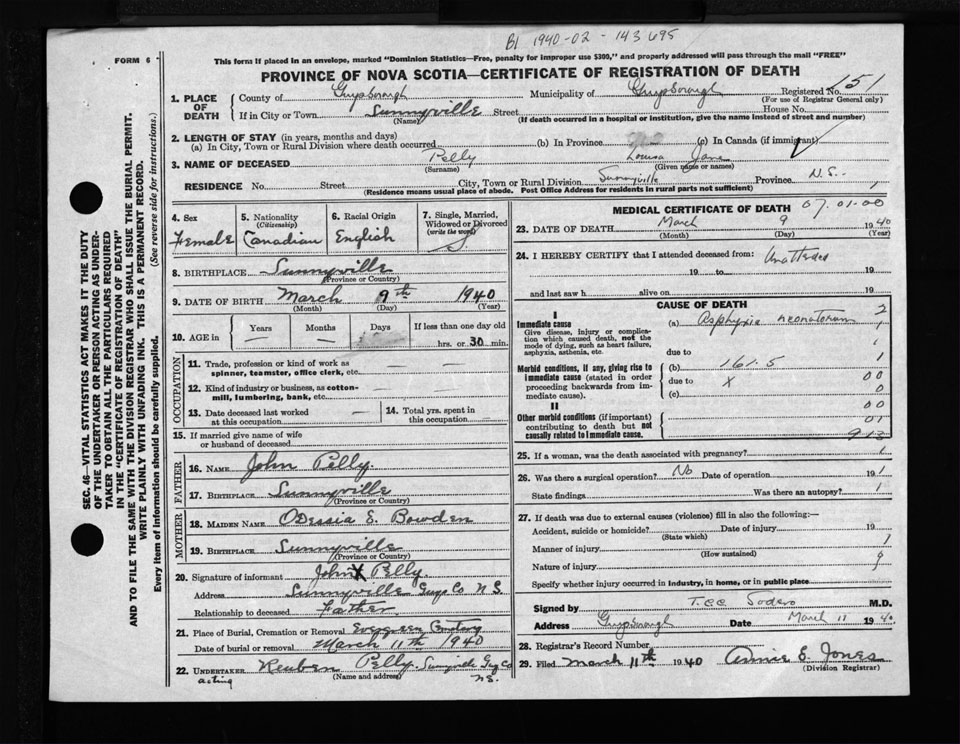 B1 1940-02 - 143695
FORM 6
This form if placed in an envelope, marked "Dominion Statistics—Free, penalty for improper use $300," and properly addressed will pass through the mail "FREE"
PROVINCE OF NOVA SCOTIA—CERTIFICATE OF REGISTRATION OF DEATH
SEC. 46—VITAL STATISTICS ACT MAKES IT THE DUTY
OF THE UNDERTAKER OR PERSON ACTING AS UNDER-
TAKER TO OBTAIN ALL THE PARTICULARS REQUIRED
IN THE "CERTIFICATE OF REGISTRATION OF DEATH"
AND TO FILE THE SAME WITH THE DIVISION REGISTRAR WHO SHALL ISSUE THE BURIAL PERMIT.
WRITE PLAINLY WITH UNFADING INK. THIS IS A PERMANENT RECORD.
Every item of Information should be carefully supplied. (See reverse side for instructions.)
1. PLACE OF DEATH County of Guysborough Municipality of Guysborough Registered No. 151
(For use of Registrar General only)
If in City or Town Sunnyville Street House No.
(Name) (If death occurred in a hospital or institution, give the name instead of street and number)
2. LENGTH OF STAY (in years, months and days)
(a) In City, Town or Rural Division where death occurred (b) In Province (c) In Canada (if immigrant)
3. NAME OF DECEASED Pelly Louisa Jane
(Surname) (Given name or names)
RESIDENCE No. Street City, Town or Rural Division Sunnyville Province N.S.
(Residence means usual place of abode. Post Office Address for residents in rural parts not sufficient) 1
4. Sex Female
5. Nationality (Citizenship) Canadian
6. Racial Origin English
7. Single, Married, Widowed or Divorced (write the word) S
8. BIRTHPLACE Sunnyville
(Province or Country)
9. DATE OF BIRTH March 9th 1940
(Month) (Day) (Year)
10. AGE in Years — Months — Days If less than one day old hrs. or 30 min.
OCCUPATION
11. Trade, profession or kind of work as spinner, teamster, office clerk, etc. — —
12. Kind of industry or business, as cotton-mill, lumbering, bank, etc.
13. Date deceased last worked at this occupation —
14. Total yrs. spent in this occupation —
15. If married give name of wife or husband of deceased
FATHER
16. NAME John Pelly.
17. BIRTHPLACE Sunnyville
(Province or Country)
MOTHER
18. MAIDEN NAME Odessia E. Bowden
19. BIRTHPLACE Sunnyville
(Province or Country)
20. Signature of informant John X Pelly
Address Sunnyville Guys Co N.S.
Relationship to deceased Father
21. Place of Burial, Cremation or Removal Evergreen Cemetary
Date of burial or removal March 11th 1940
22. UNDERTAKER Reuben Pelly. Sunnyville Guy Co
acting (Name and address) N.S.
MEDICAL CERTIFICATE OF DEATH 07.01.00
23. DATE OF DEATH March 9 1940
(Month) (Day) (Year)
24. I HEREBY CERTIFY that I attended deceased from: Unattended
19 to 19
and last saw h alive on 19
CAUSE OF DEATH 2
I
Immediate cause (a) Asphyxia neonatorum 1
Give disease, injury or complication which caused death, not the mode of dying, such as heart failure, asphyxia, asthenia, etc.
due to
Morbid conditions, if any, giving rise to immediate cause (stated in order proceeding backwards from immediate cause). (b) 161.5 1
due to X 00
(c) 0
II 00
Other morbid conditions (if important) contributing to death but not causally related to immediate cause. 01
913
25. If a woman, was the death associated with pregnancy? 1
26. Was there a surgical operation? No Date of operation 19 1
State findings Was there an autopsy? 1
27. If death was due to external causes (violence) fill in also the following:—
Accident, suicide or homicide? Date of injury 19
(State which)
Manner of injury 1
(How sustained)
Nature of injury 9
Specify whether injury occurred in industry, in home, or in public place
Signed by M.D.
Address Guysborough Date March 11 1940
28. Registrar's Record Number
29. Filed March 11th 1940 Annie E. Jones
(Division Registrar)